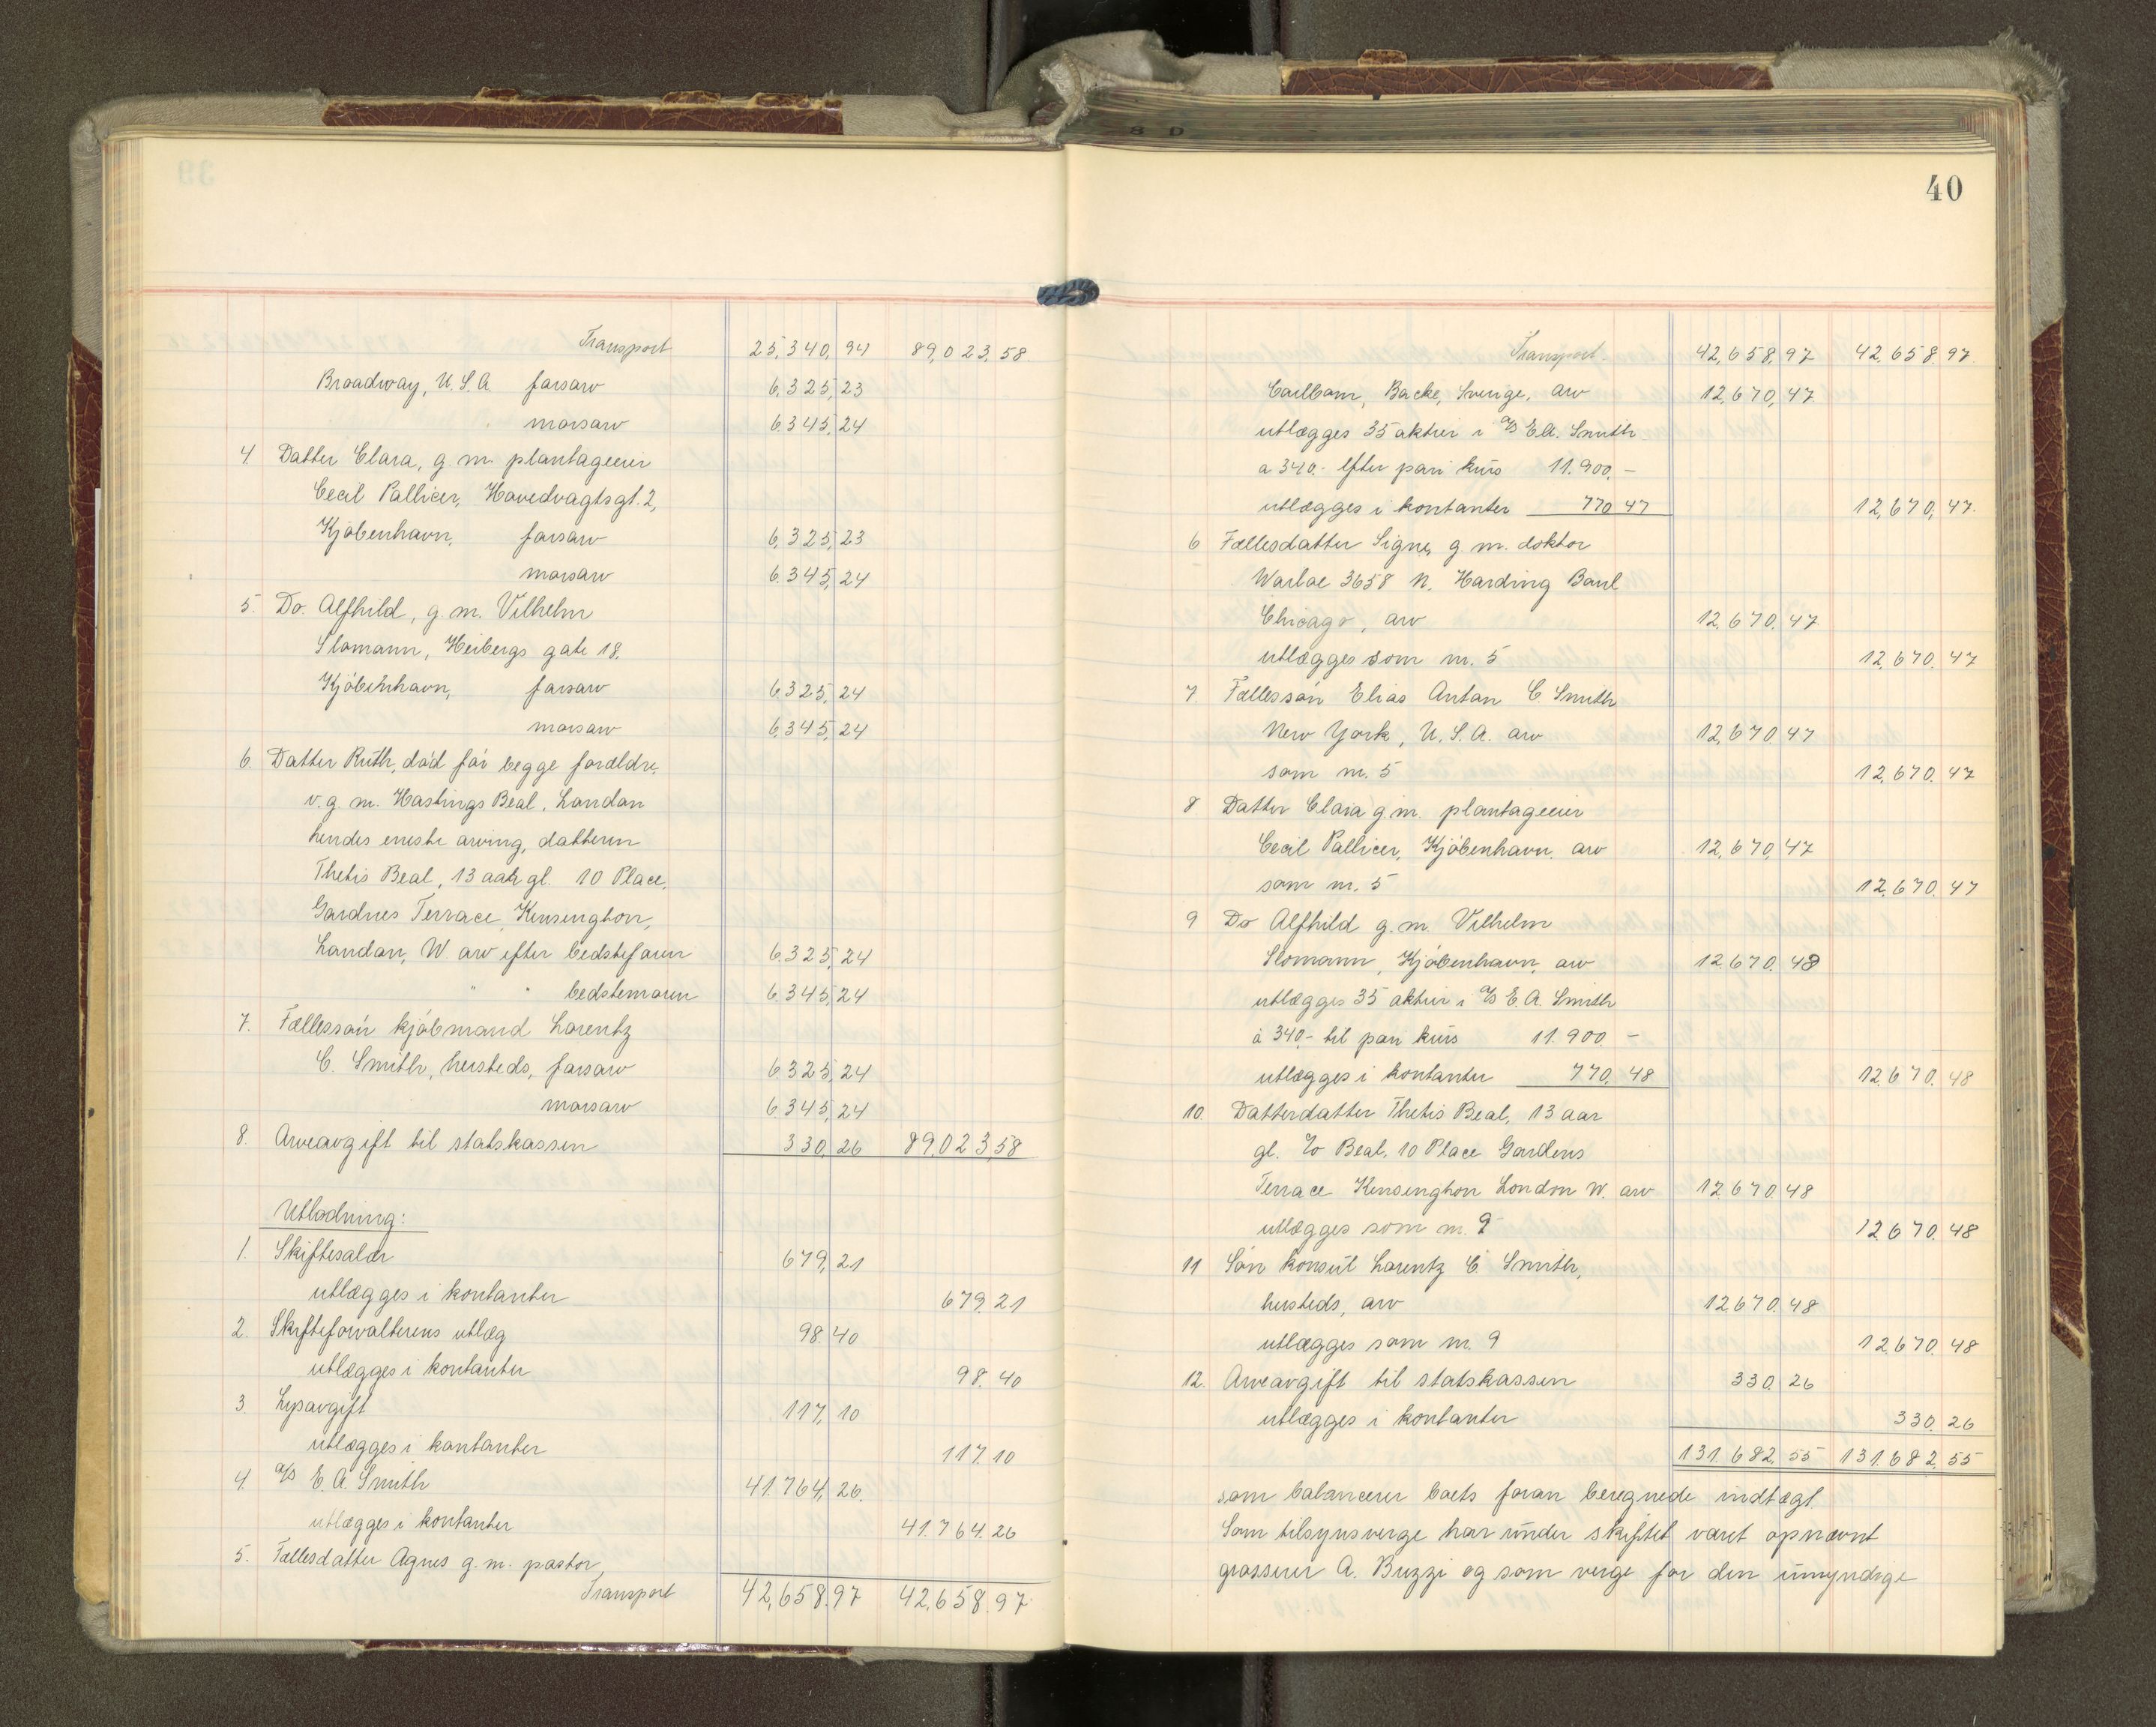 Transport 25,340,94 89,023,58
Broadway, U.S.A. farsarv 6,325,23
morsarv 6.345,24
4. Datter Clara, g. m. plantageeier
Cecil Pallicer, Hovedvagtsgt. 2,
Kjöbenhavn, farsarv 6,325,23
morsarv 6.345,24
5. Do. Alfhild, g. m. Vilhelm
Slomann, Heibergs gate 18,
Kjöbenhavn, farsarv 6.325,24
morsarv 6,345,24
6. Datter Ruth, död för begge forældre,
v. g. m. Hastings Beal, London
hendes eneste arving, datteren
Thetis Beal, 13 aar gl. 10 Place,
Gardnes Terrace, Kensington,
London, W arv efter bedstefaren 6.325,24
" " bedstemoren 6.345,24
7. Fællessön kjöbmand Lorentz
C. Smith, hersteds, farsarv 6.325,24
morsarv 6.345,24
8. Arveavgift til statskassen 330,26 89,023,58
Utlodning:
1. Skiftesalær 679,21
utlægges i kontanter 679.21
2. Skifteforvalterens utlæg 98.40
utlægges i kontanter 98.40
3. Lysavgift 117,10
utlægges i kontanter 117.10
4. A/S E. A. Smith 41.764,26.
utlægges i kontanter 41.764.26
5. Fællesdatter Agnes g. m. pastor
Transport 42,658.97 42,658.97
40
Transport. 42,658,97 42,658,97
Carlbom, Backe, Sverige, arv 12,670,47
utlægges 35 aktier i A/S E.A. Smith
a 340.- efter pari kurs 11.900.-
utlægges i kontanter 770 47 12,670,47.
6 Fællesdatter Signe, g. m. doktor
3658 N. Harding
Chicago, arv 12.670.47
utlægges som nr. 5 12,670.47
7. Fællessön Elias Anton C. Smith
New York, U.S.A. arv 12,670 47
som nr. 5 12,670.47
8 Datter Clara g.m. plantageeier
Cecil Pallicer, Kjöbenhavn, arv 12,670,47
som nr. 5 12.670.47
9 Do Alfhild g. m. Vilhelm
Slomann, Kjöbenhavn, arv 12670.48
utlægges 35 aktier i A/S E. A. Smith
à 340,- til pari kurs 11.900.-
utlægges i kontanter 770.48 12.670.48
10 Datterdatter Thetis Beal, 13 aar
gl. c/o Beal, 10 Place Gardens
Terrace Kensington London W. arv 12670.48
utlægges som nr. 9 12.670.48
11 Sön konsul Lorentz C. Smith,
hersteds, arv 12670.48
utlægges som nr. 9 12.670.48
12. Arveavgift til statskassen 330.26
utlægges i kontanter 330.26
131.682.55 131.682.55
som balancerer boets foran beregnede indtægt.
Som tilsynsverge har under skiftet været opnævnt
grosserer A. Buzzi og som verge for den umyndige